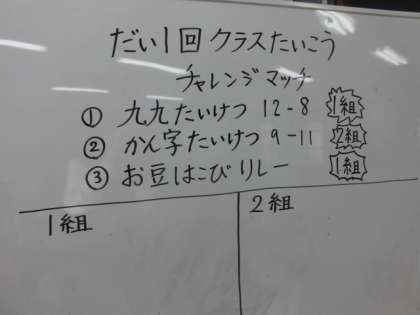 だい1回 クラスたいこう
チャレンジマッチ
① 九九たいけつ 12-8 1組
② かん字たいけつ 9-11 2組
③ お豆はこびリレー 1組
1組 2組